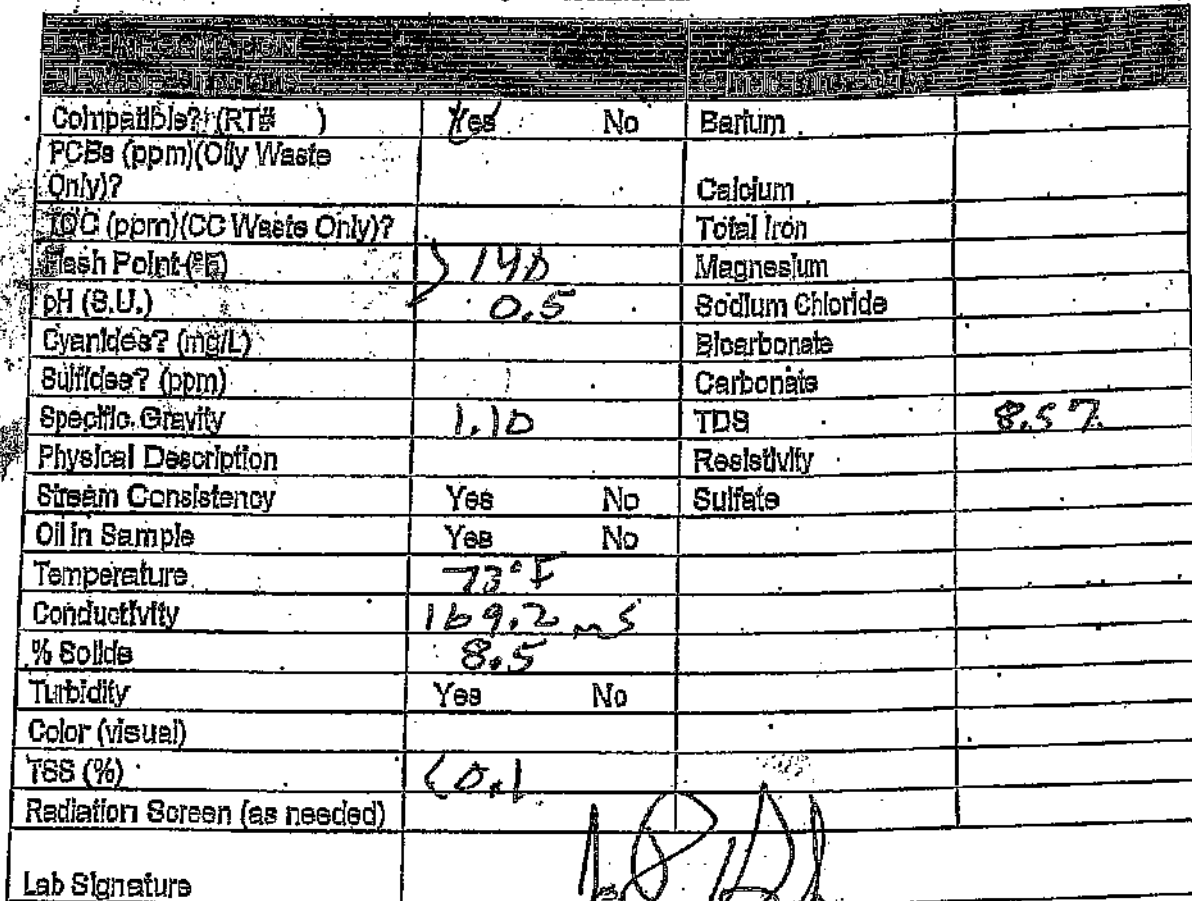 LAB INFORMATION
Compatible? (RT# ) Yes No Barium
PCBs (ppm)(Oily Waste
Only)? Calcium
TOC (ppm)(CC Waste Only)? Total Iron
Flash Point (°F) >140 Magnesium
pH (S.U.) 0.5 Sodium Chloride
Cyanides? (mg/L) Bicarbonate
Sulfides? (ppm) Carbonate
Specific Gravity 1.10 TDS 8.5%
Physical Description Resistivity
Stream Consistency Yes No Sulfate
Oil in Sample Yes No
Temperature 73°F
Conductivity 169.2 mS
% Solids 8.5
Turbidity Yes No
Color (visual)
TSS (%) <0.1
Radiation Screen (as needed)
Lab Signature